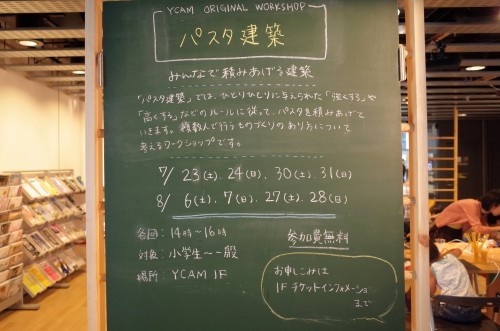 YCAM ORIGINAL WORKSHOP
パスタ建築
みんなで積みあげる建築
「パスタ建築」では、ひとりひとりに与えられた「強くする」や
「高くする」などのルールに従って、パスタを積みあげて
いきます。複数人で行うものづくりのあり方について
考えるワークショップです。
7/ 23(土). 24(日). 30(土). 31(日)
8/ 6(土). 7(日). 27(土). 28(日)
各回：14時〜16時
対象：小学生〜一般
場所：YCAM 1F
参加費無料
お申しこみは
1F チケットインフォメーショ
まで